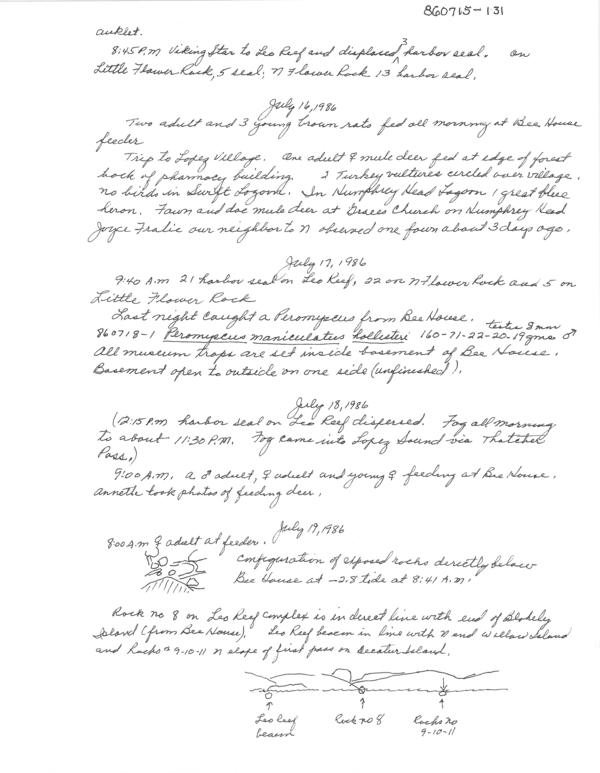 860715-131
auklet.
8:45 P.M Viking Star to Leo Reef and displaced 3 harbor seal. on
Little Flower Rock, 5 seal; N Flower Rock 13 harbor seal.
July 16, 1986
Two adult and 3 young brown rats fed all morning at Bee House
feeder
Trip to Lopez Village. One adult ♀ mule deer fed at edge of forest
back of pharmacy building. 2 Turkey vultures circled over village.
no birds in Swift Lagoon. In Humphrey Head Lagoon 1 great blue
heron. Fawn and doe mule deer at Graces Church on Humphrey Head
Joyce Fralic our neighbor to N observed one fawn about 3 days ago.
July 17, 1986
9:40 A.m 21 harbor seal on Leo Reef, 22 on N Flower Rock and 5 on
Little Flower Rock
Last night caught a Peromyscus from Bee House.
testes 8 mm
860718-1 Peromyscus maniculatus hollisteri 160-71-22-20-19 gms ♂
All museum traps are set inside basement of Bee House.
Basement open to outside on one side (unfinished).
July 18, 1986
(2:15 P.m harbor seal on Leo Reef dispersed. Fog all morning
to about 11:30 P.M. Fog came into Lopez Sound via Thatcher
Pass.)
9:00 A.M. a ♂ adult, ♀ adult and young ♀ feeding at Bee House.
Anneth took photos of feeding deer.
July 19, 1986
8:00 A.m ♀ adult at feeder.
configuration of exposed rocks directly below
Bee House at -2.8 tide at 8:41 A.m.
Rock no 8 on Leo Reef complex is in direct line with end of Blakely
Island (from Bee House). Leo Reef beacon in line with N end Willow Island
and Rocks # 9-10-11 N slope of first pass on Decatur Island.
Leo Reef
beacon
Rock no 8
Rocks no
9-10-11